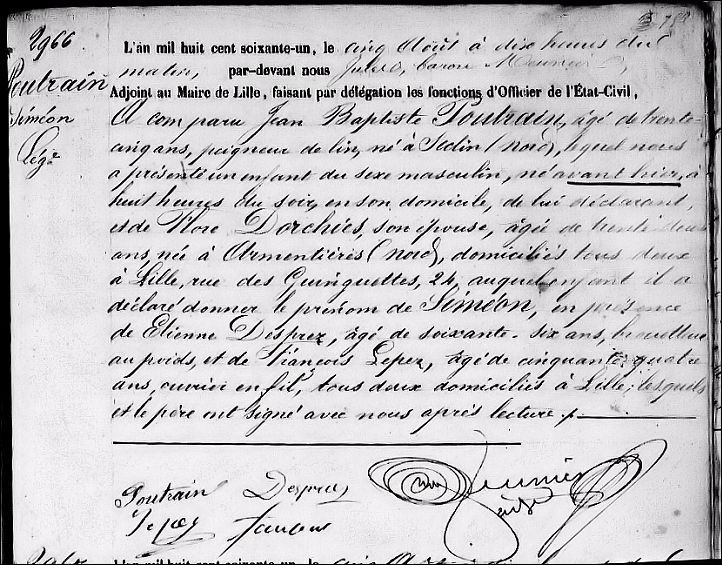 2966
Poutrain
Siméon
Lég.e
L'àn mil huit cent soixante-un, le cinq Août à dix heures du
matin, par-devant nous Jules, baron Meunier,
Adjoint au Maire de Lille, faisant par délégation les fonctions d'Officier de l'État-Civil,
A comparu Jean Baptiste Poutrain, âgé de trente-
cinq ans, peigneur de lin, né à Seclin (nord), lequel nous
a présenté un enfant du sexe masculin, né avant hier, à
huit heures du soir, en son domicile, de lui déclarant,
et de Flore Dorchies, son épouse, âgée de trente deux
ans, née à Armentières (nord), domiciliés tous deux
à Lille, rue des Guinguettes, 24, auquel enfant il a
déclaré donner le prénom de Siméon, en présence
de Etienne Desprez, âgé de soixante-six ans,
au poids, et de François Lepez, âgé de cinquante-quatre
ans, ouvrier en fil, tous deux domiciliés à Lille; lesquels
et le père ont signé avec nous après lecture.
Poutrain Desprez Meunier
Lepez
2967 L'àn mil huit cent soixante-un, le cinq